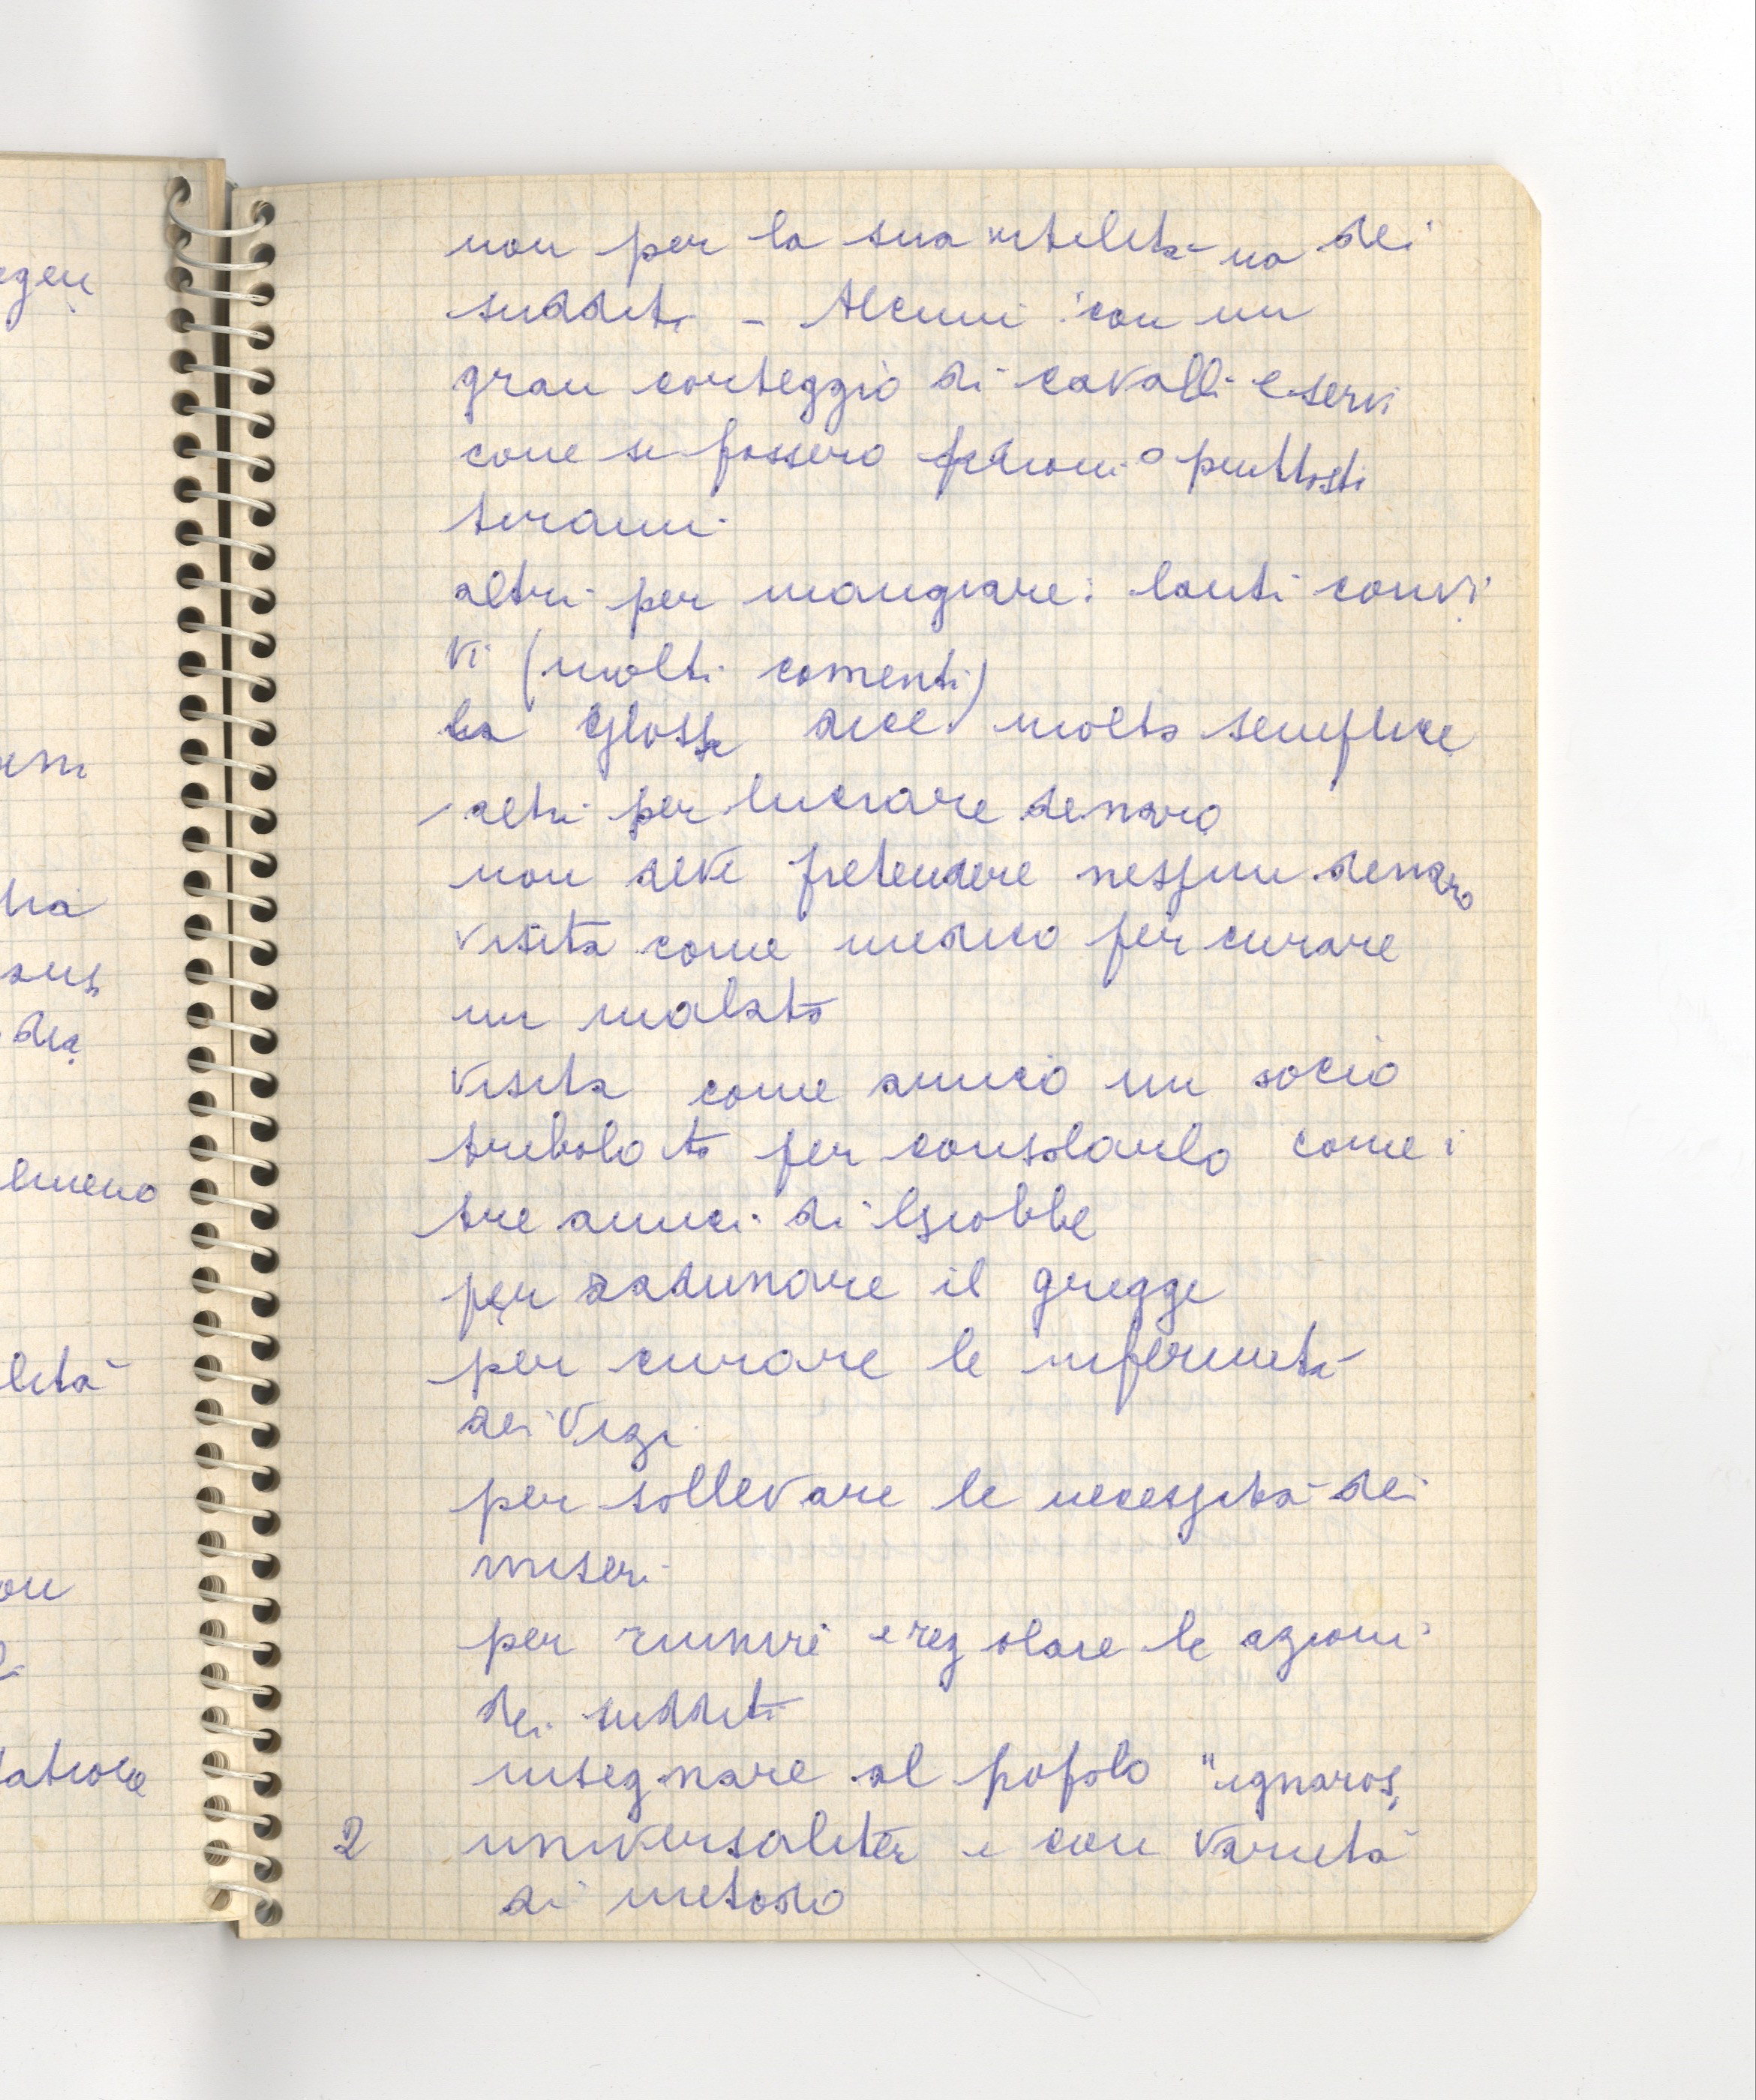 egeu
emi
tia
sus
dia
lmeno
lità
ou
tatiole
non per la sua utilità ma dei
sudditi - Alcuni con un
gran corteggio di cavalli e servi
come se fossero o piuttosti
tiranni
altri per mangiare: lauti convi
vi (molti comenti)
la Glossa dice molto semplice
altri per lucrare denaro
non deve pretendere nessun denaro
visita come medico per curare
un malato
visita come amico un socio
tribolato per consolarlo come i
tre amici di Giobbe
per radunare il gregge
per curare le infermità
dei vizi
per sollevare le necessità dei
miseri
per riunire e regolare le azioni
dei sudditi
insegnare al popolo "ignaros,
2 universaliter e con varietà
di metodo